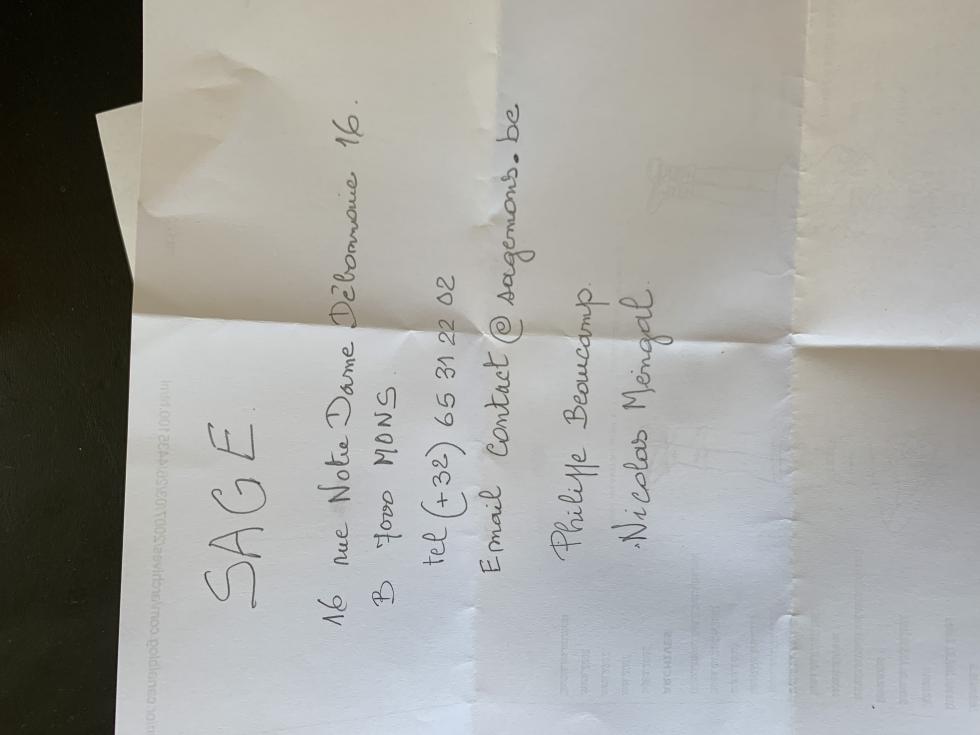 SAGE
16 rue Notre Dame Débonnaire 16.
B 7000 MONS.
tel (+32) 65 31 22 02
Email contact@sagemons.be
Philippe Beaucamp.
Nicolas Mengal.